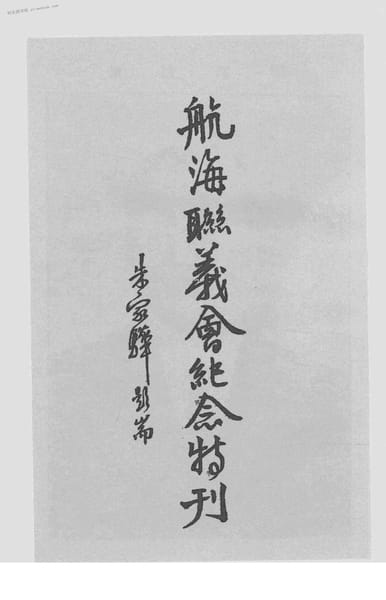 航海聯義會紀念特刊
朱家驊題耑